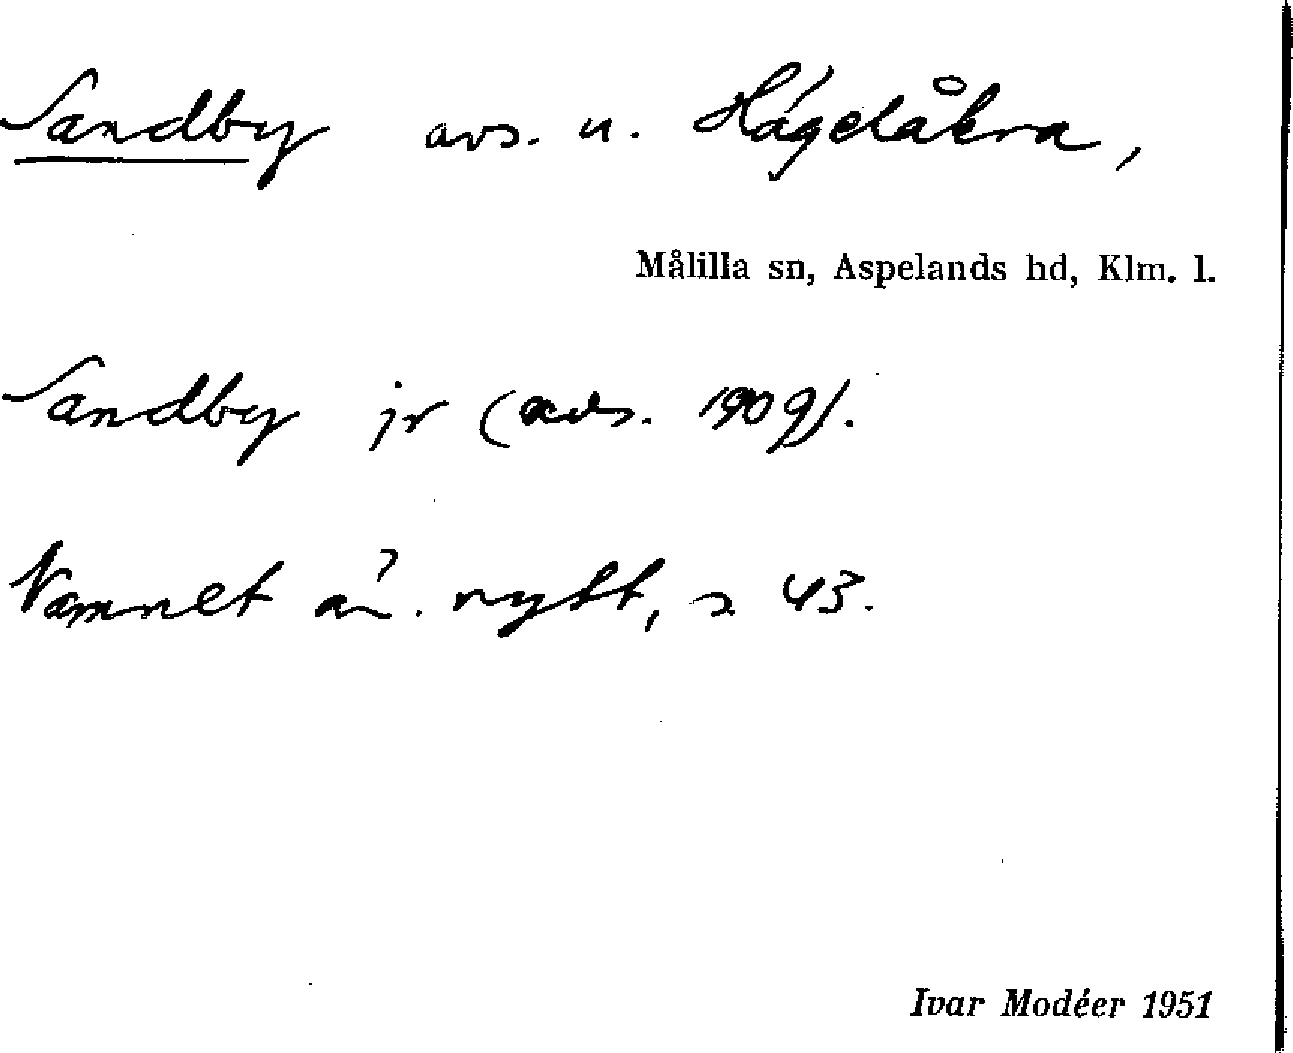 Sandby avs. u. Hägelåkra,
Målilla sn, Aspelands hd, Klm. l.
Sandby jr (avs. 1909).
Namnet nytt, s 43.
Ivar Modéer 1951